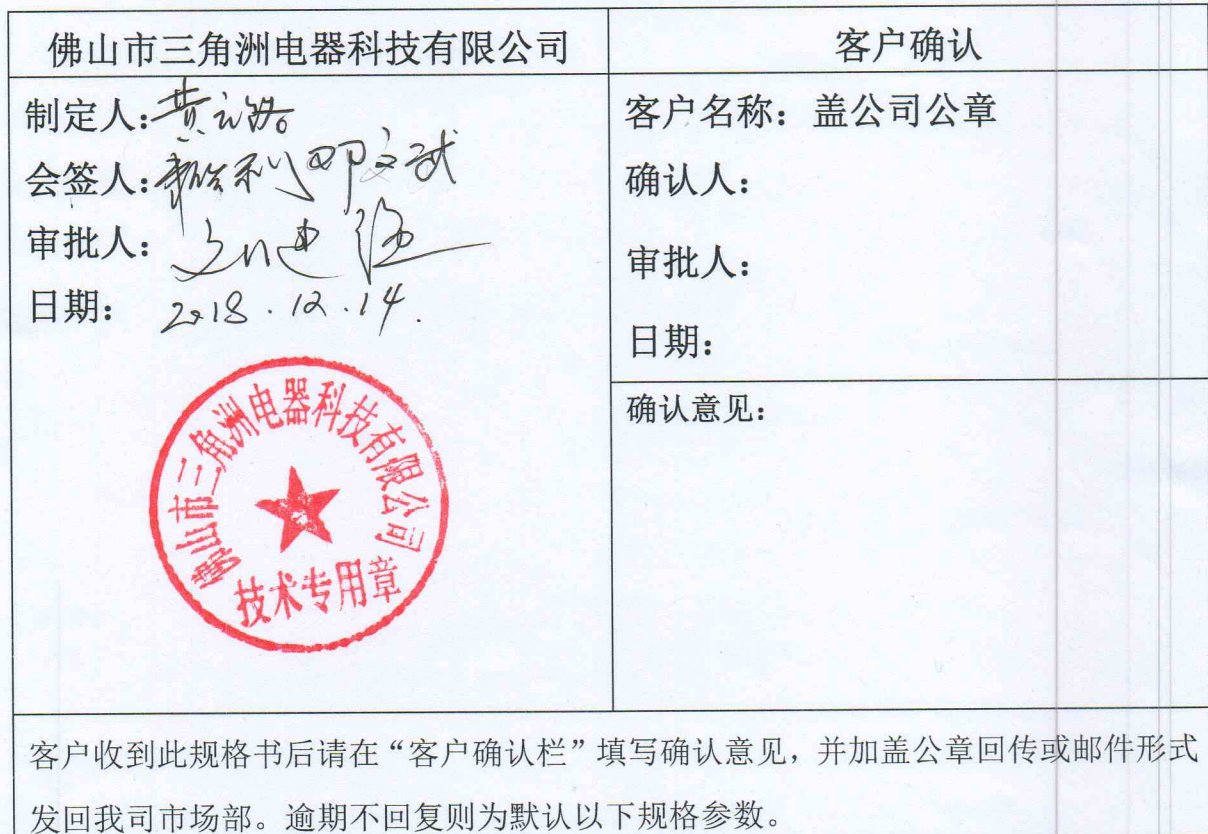 佛山市三角洲电器科技有限公司
制定人：黄
会签人： 邓文武
审批人：
日期：2018.12.14.
佛山市三角洲电器科技有限公司
技术专用章
客户确认
客户名称：盖公司公章
确认人：
审批人：
日期：
确认意见：
客户收到此规格书后请在“客户确认栏”填写确认意见，并加盖公章回传或邮件形式
发回我司市场部。逾期不回复则为默认以下规格参数。